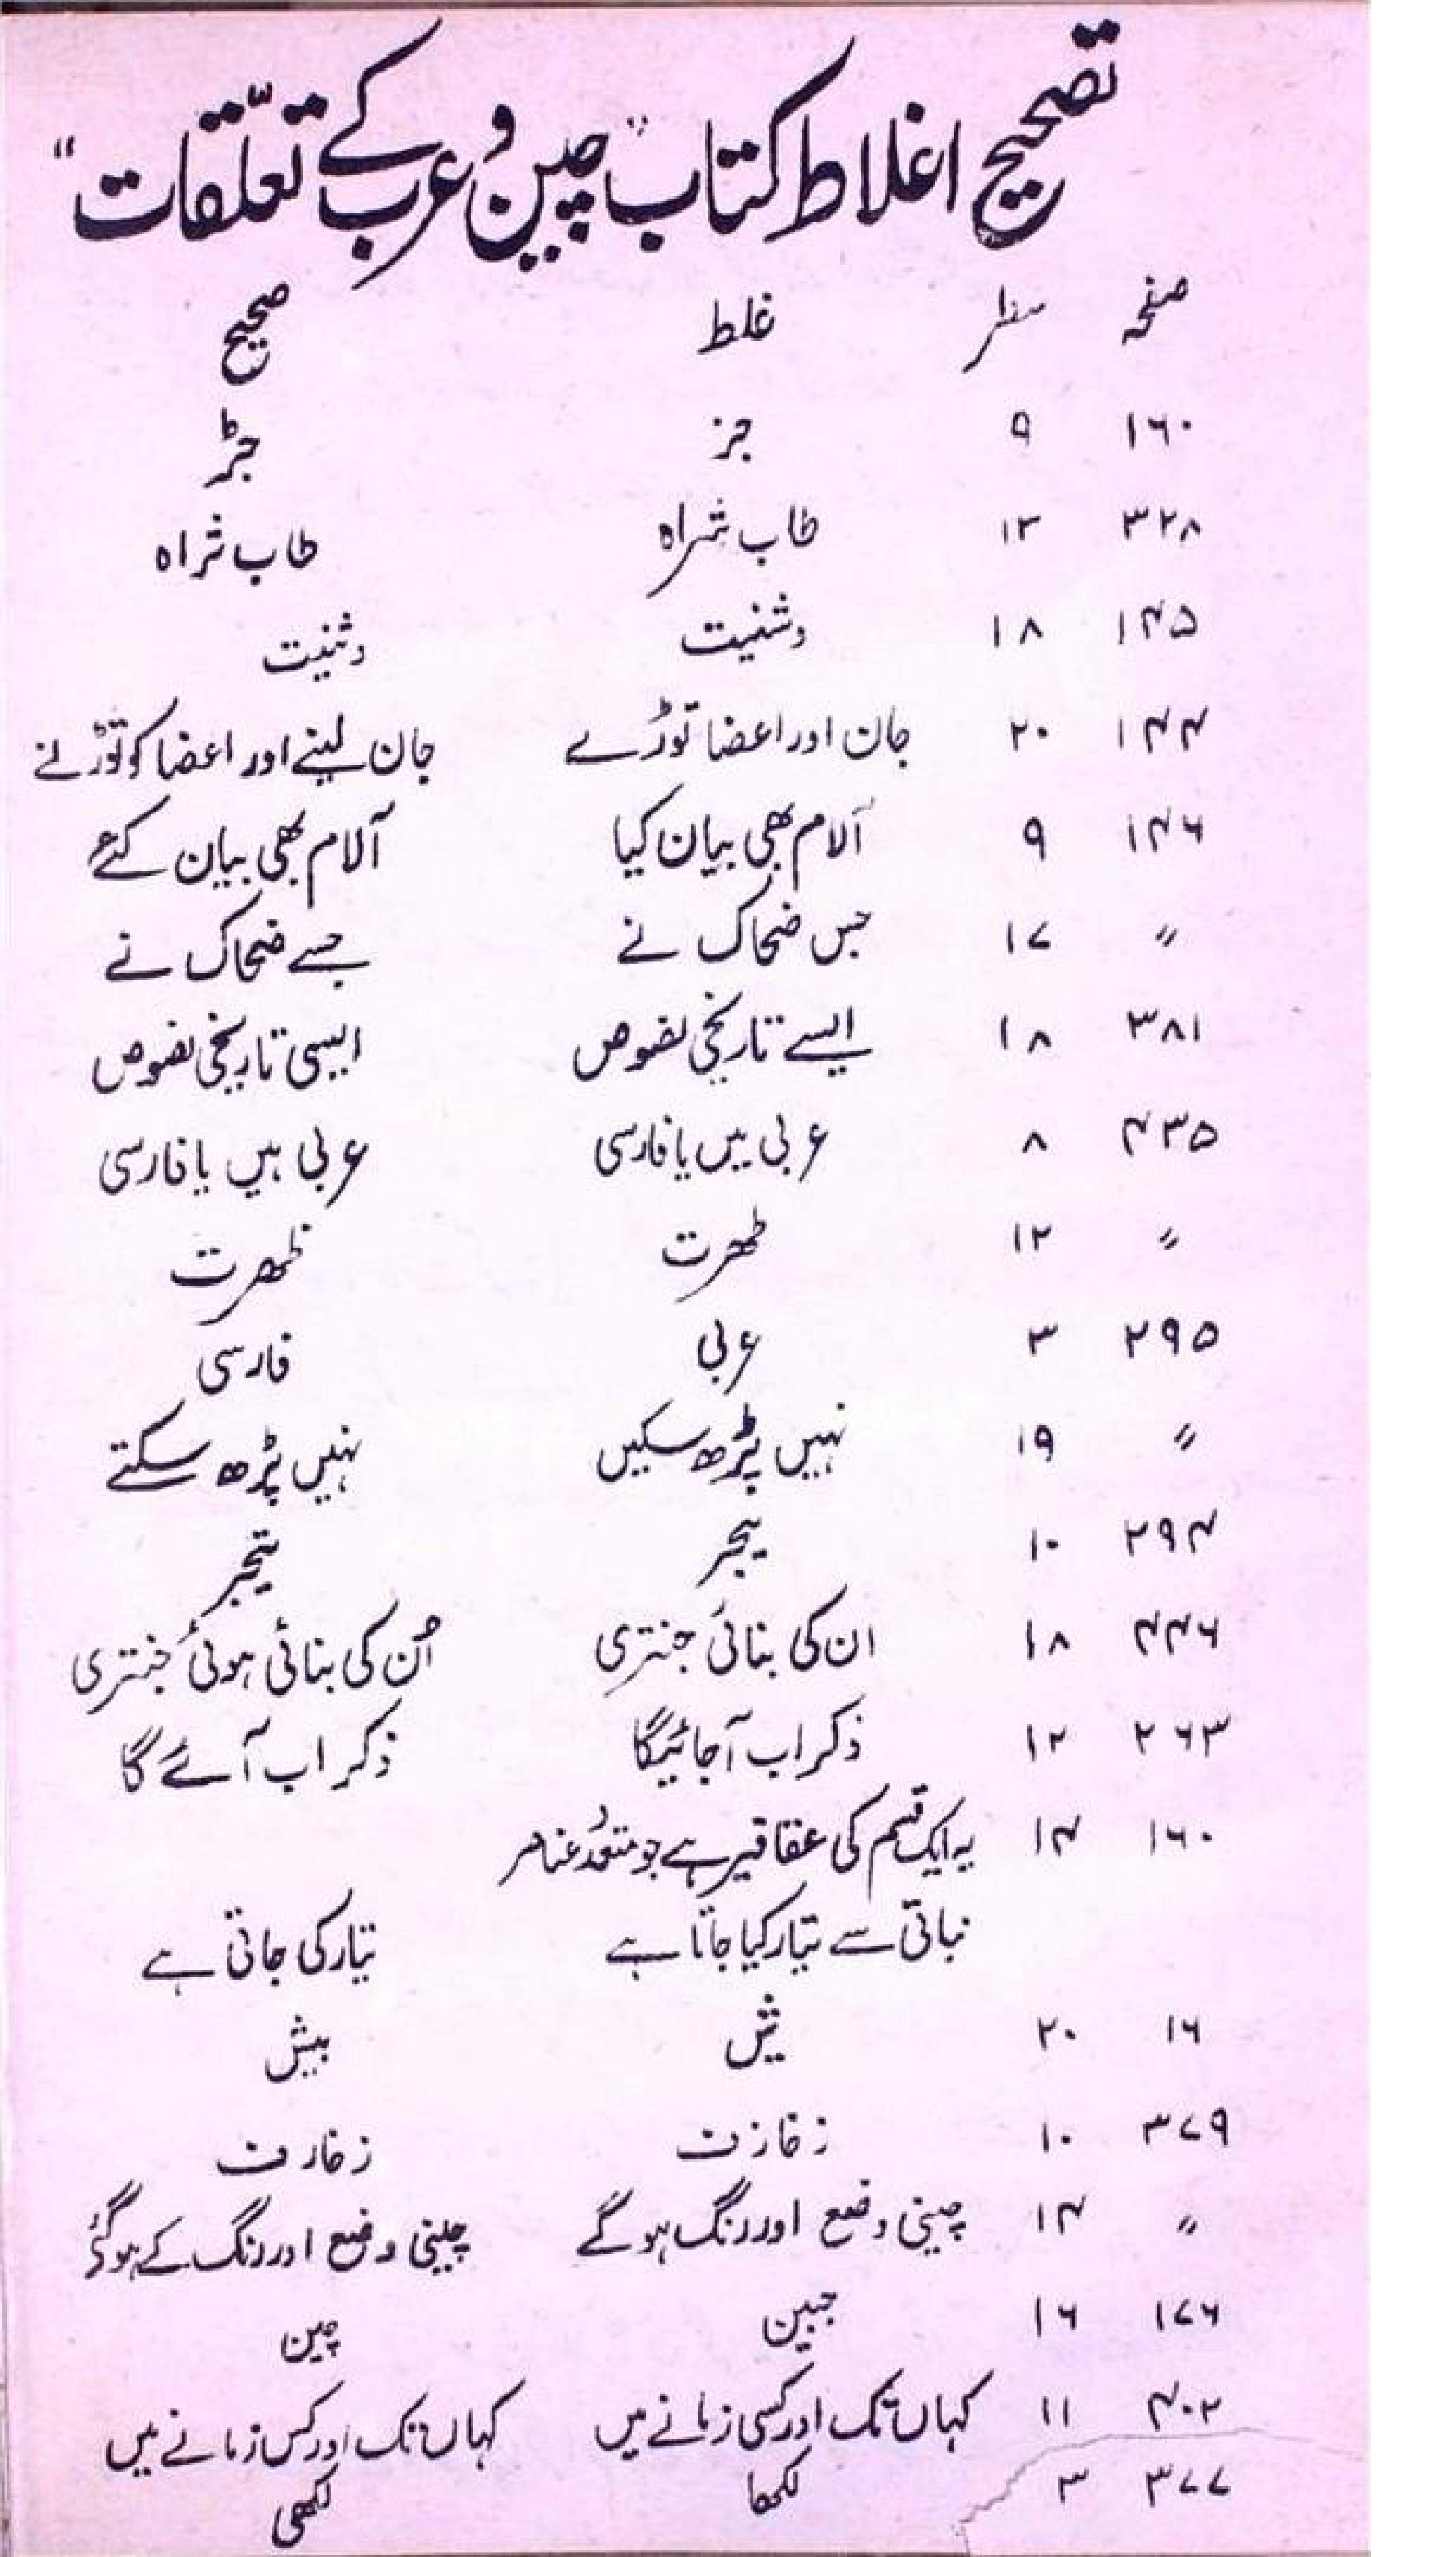 تصحیح اغلاط کتاب "چین و عرب کے تعلّقات"
صفحہ سطر غلط صحیح
۱۶۰ ۹ جز جڑ
۳۲۸ ۱۳ طاب شراہ طاب ثراہ
۱۴۵ ۱۸ دشنیت دثنیت
۱۴۴ ۲۰ جان اور اعضا توڑے جان لینے اور اعضا کو توڑنے
۱۴۶ ۹ آلام بھی بیان کیا آلام بھی بیان کئے
〃 ۱۷ جس ضحاک نے جسے ضحاک نے
۳۸۱ ۱۸ ایسے تاریخی نصوص ایسی تاریخی نصوص
۴۳۵ ۸ عربی میں یا فارسی عربی ہیں یا فارسی
〃 ۱۲ ٹھرت ظھرت
۲۹۵ ۳ عربی فارسی
〃 ۱۹ نہیں پڑھ سکیں نہیں پڑھ سکتے
۲۹۴ ۱۰
۴۴۶ ۱۸ ان کی بنائی جنتری اُن کی بنائی ہوئی جنتری
۲۶۳ ۱۲ ذکر اب آجائیگا ذکر اب آئے گا
۱۶۰ ۱۴ یہ ایک قسم کی عقاقیر ہے جو متعدد عناصر
نباتی سے تیار کیا جاتا ہے تیار کی جاتی ہے
۱۶ ۲۰ بیش
۳۷۹ ۱۰ زفازت زفارت
〃 ۱۴ چینی وضع اور رنگ ہو گے چینی وضع اور رنگ کے ہو گئے
۱۷۶ ۱۶ جبین چین
۴۰۲ ۱۱ کہاں تک اور کسی زمانے میں کہاں تک اور کس زمانے میں
۳۷۷ ۳ لکھا لکھی